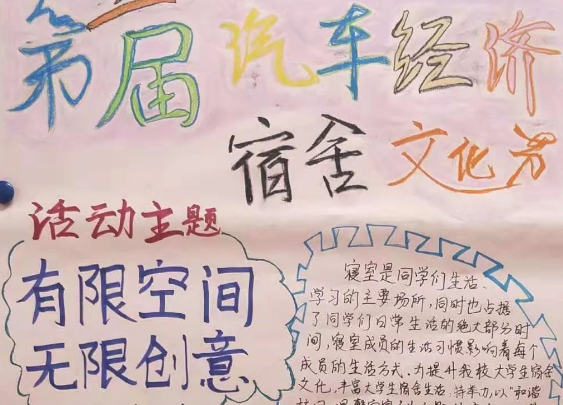 第一届汽车经济
宿舍文化节
活动主题
有限空间
无限创意
寝室是同学们生活、
学习的主要场所,同时也占据
了同学们日常生活的绝大部分时
间,寝室成员的生活习惯影响着每个
成员的生活方式,为提升我校大学生宿舍
文化,丰富大学生宿舍生活,特举办以“和谐